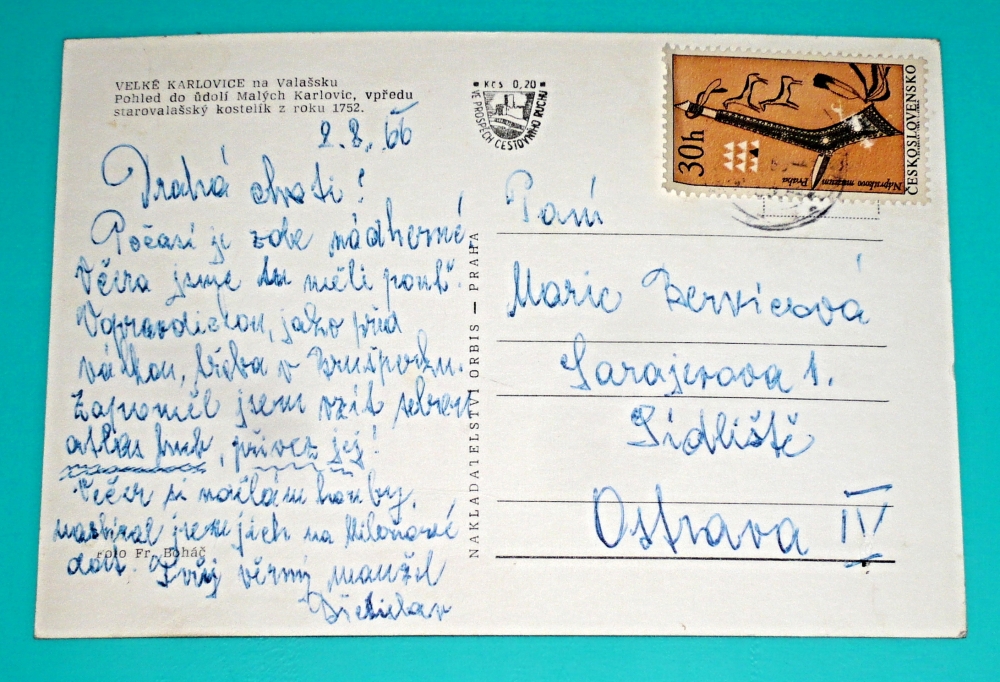 VELKÉ KARLOVICE na Valašsku
Pohled do údolí Malých Karlovic, vpředu
starovalašský kostelík z roku 1752.
Kčs 0,20
VE PROSPĚCH CESTOVNÍHO RUCHU
30h
Náprstkovo muzeum Praha
ČESKOSLOVENSKO
2.8.66
Drahá choti!
Počasí je zde nádherné
Včera jsme tu měli pouť.
Opravdickou, jako před
válkou, třeba v Brušperku.
Zapoměl jsem vzít sebou
atlas hub, přivez jej!
Večer si nadělám houby,
nasbíral jsem jich na Miloňové
dost. Tvůj věrný manžel
Břetislav
foto Fr. Boháč
NAKLADATELSTVÍ ORBIS — PRAHA
Paní
Marie
Sarajevova 1.
Sídliště
Ostrava IV